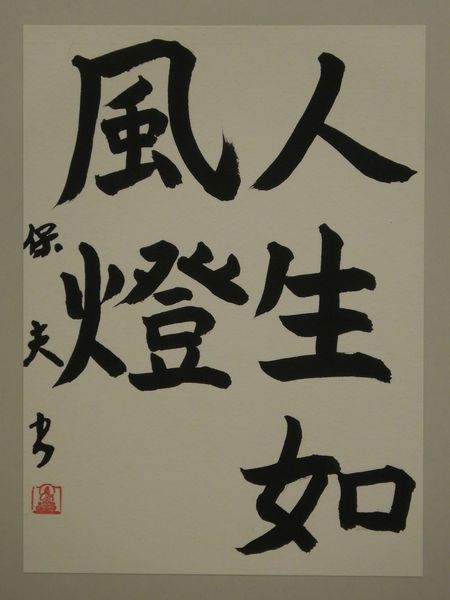 人生如
風燈
保夫书